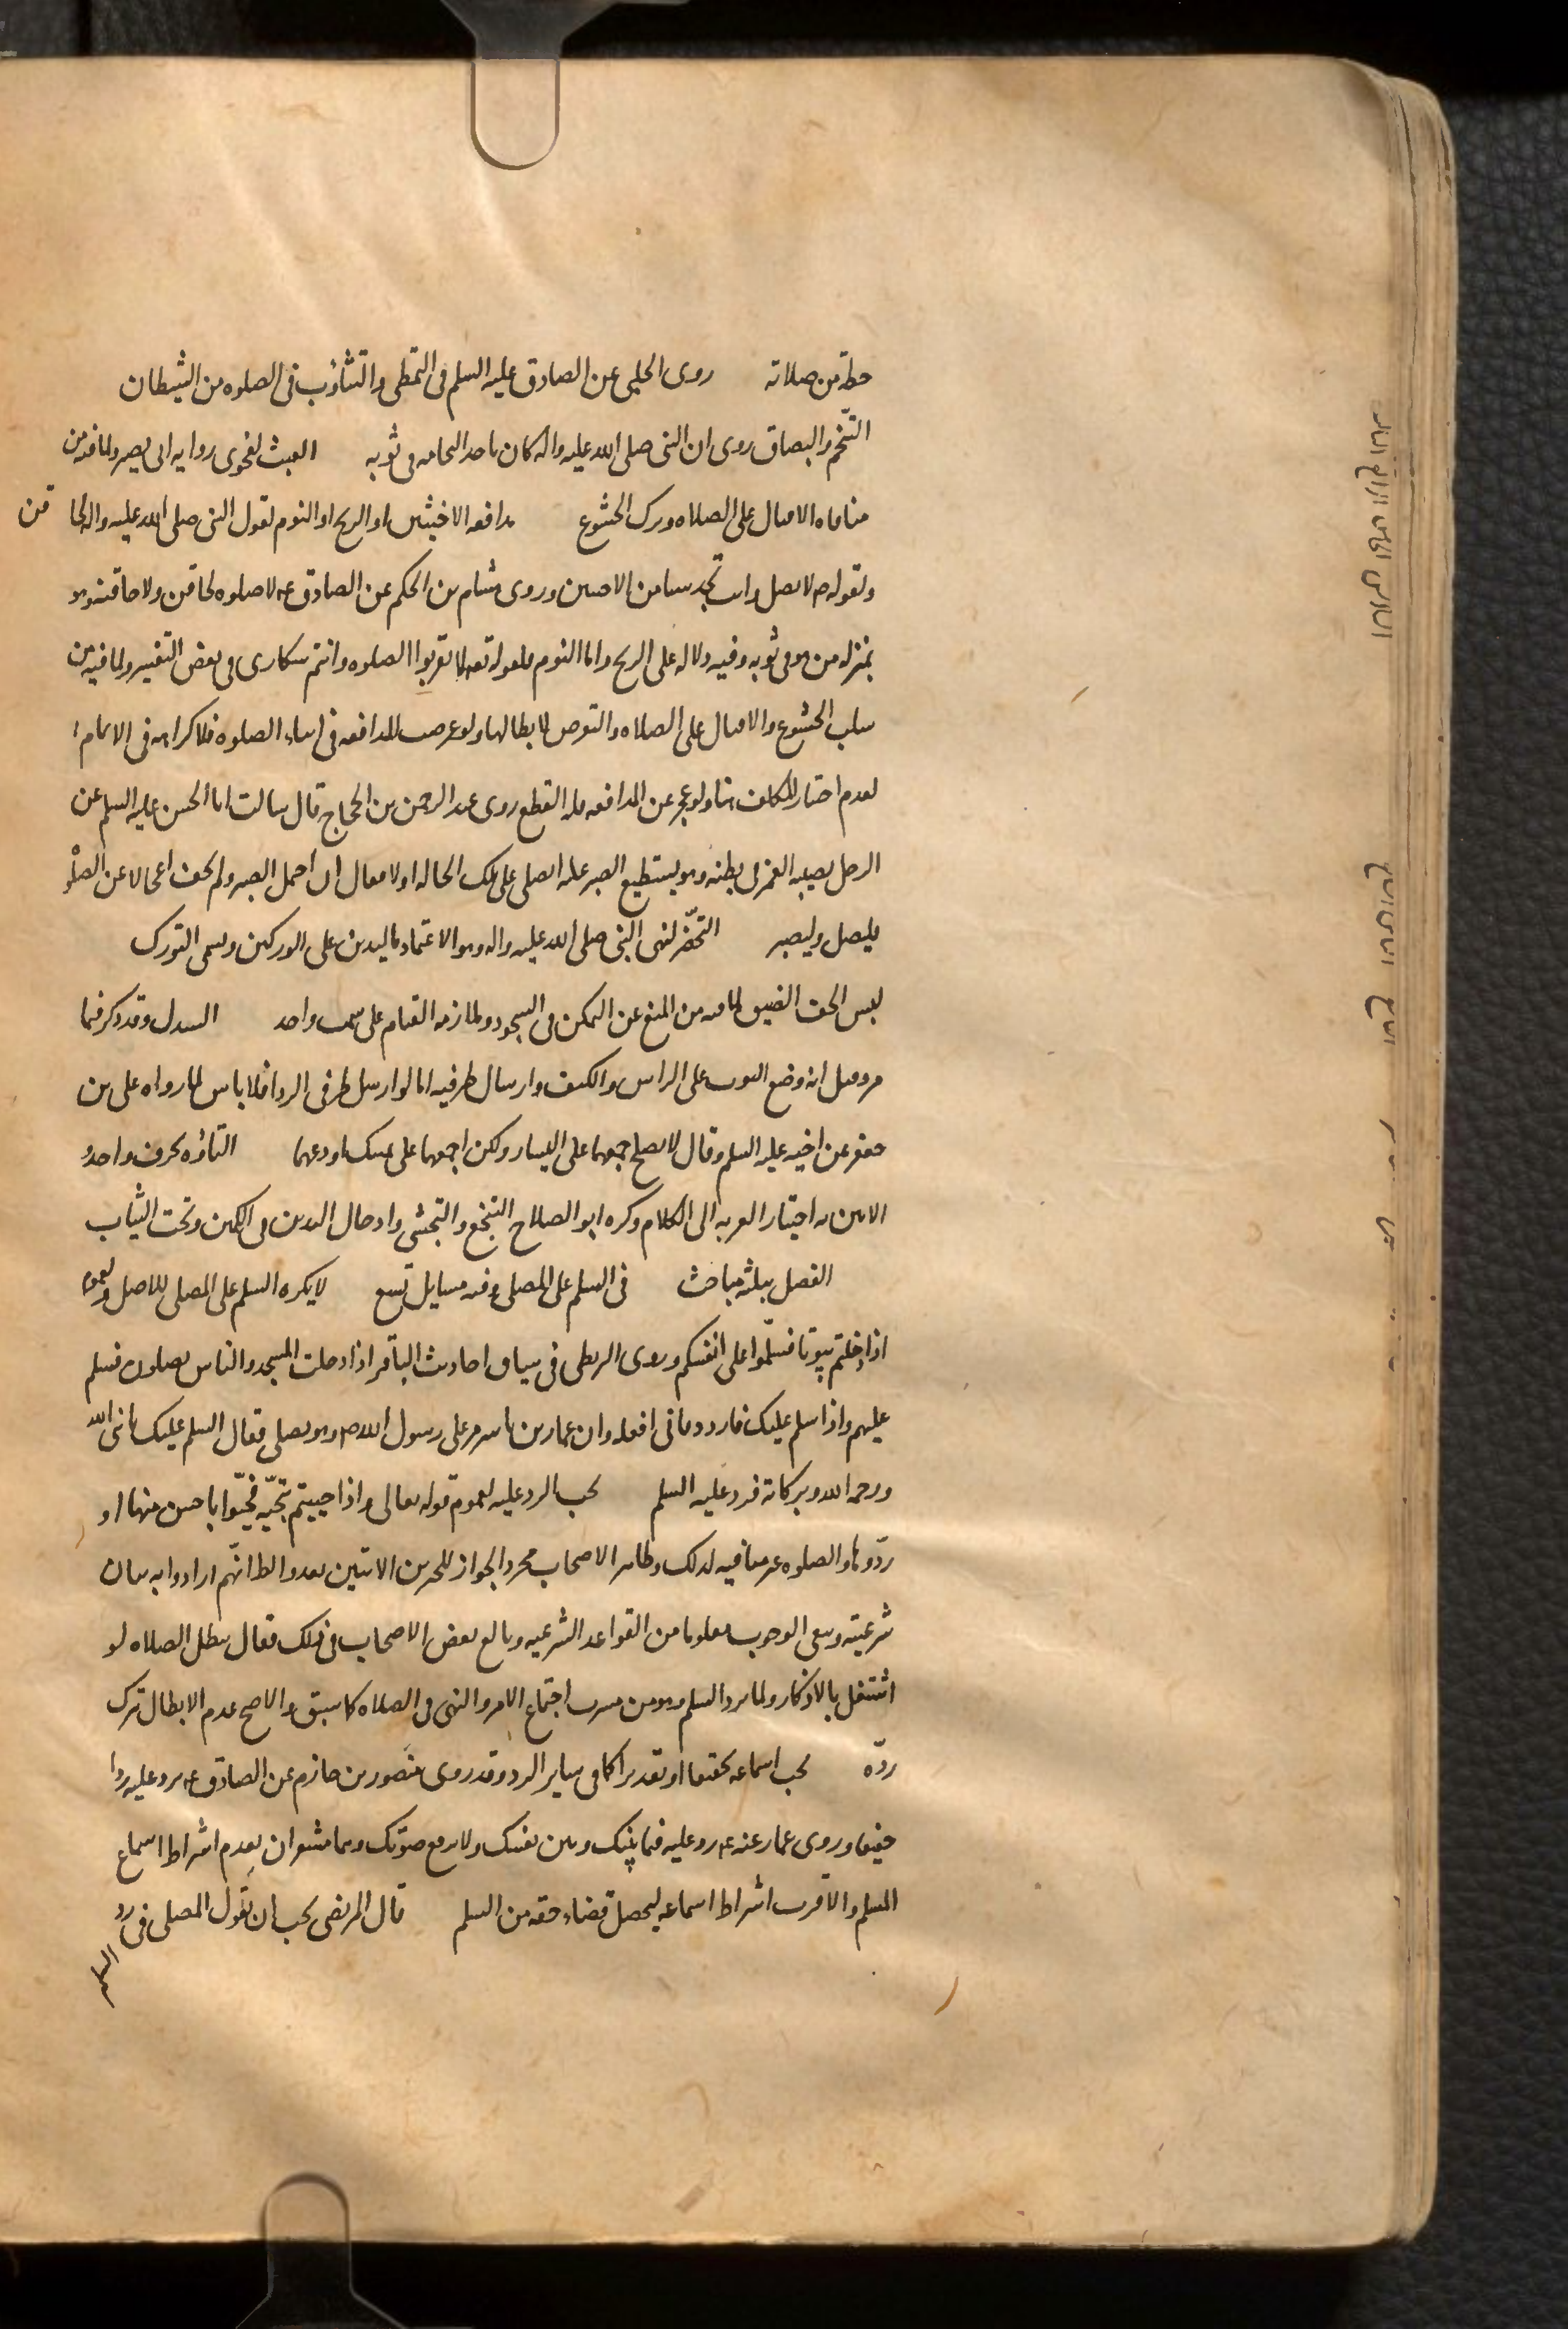 حظه من صلاته روى الحلبي عن الصادق عليه السلم فى التمطى والتثاؤب فى الصلوه من الشيطان
التنخّم والبصاق روى ان النبى صلى الله عليه واله كان ياخذ النخامه فى ثوبه العبث لفحوى روايه ابى بصير ولما فيه من
منافاه الاقبال على الصلاه وترك الخشوع مدافعه الاخبثين او الريح او النوم لقول النبى صلى الله عليه واله لحا قن
ولقوله ص لا تصل وانت تجد شيا من الاخبثين وروى هشام بن الحكم عن الصادق ع لا صلوه لحاقن ولا حاقنه وهو
بمنزله من هو فى ثوبه وفيه دلاله على الريح واما النوم فلقوله تعه لا تقربوا الصلوه وانتم سكارى فى بعض التفسير ولما فيه من
سلب الخشوع والاقبال على الصلاه والتعرض لابطالها ولو عرضت المدافعه فى اثناء الصلوه فلا كراهه فى الاتمام
لعدم اختيار المكلف هنا ولو عجز عن المدافعه فله القطع روى عبد الرحمن بن الحجاج قال سالت ابا الحسن عليه السلم عن
الرجل يصيبه الغمز فى بطنه وهو يستطيع الصبر عليه ايصلى على تلك الحاله او لا فقال ان احتمل الصبر ولم يخف اعجالا عن الصلو
فليصل وليصبر التخصّر لنهى النبى صلى الله عليه واله وهو الاعتماد باليدين على الوركين ويسمى التورك
لبس الخف الضيق لما فيه من المنع عن التمكن فى السجود وملازمه القيام على سمت واحد السدل وقد ذكر فيما
مر وقيل انه وضع الثوب على الراس والكتف وارسال طرفيه اما لو ارسل طرفى الردا فلا باس لما رواه على بن
جعفر عن اخيه عليه السلم وقال لا يصلح جمعهما على اليسار ولكن اجمعهما على يمينك او دعهما التاؤه بحرف واحد و
الانين به اجتنابا لقربه الى الكلام وكره ابو الصلاح التنخع والتجشى وادخال اليدين فى الكمين وتحت الثياب
الفصل بثلثه مباحث فى السلم على المصلى وفيه مسايل تسع لا يكره السلم على المصلى للاصل ولعموم
اذا دخلتم بيوتا فسلّموا على انفسكم وروى البزنطى فى سياق احاديث الباقر اذا دخلت المسجد والناس يصلون فسلم
عليهم واذا سلم عليك فاردد فانى افعله وان عمار بن ياسر مر على رسول الله ص وهو يصلى فقال السلم عليك يا نبى الله
ورحمه الله وبركاته فرد عليه السلم يجب الرد عليه لعموم قوله تعالى واذا حييتم بتحيّه فحيّوا باحسن منها او
ردّوها والصلوه غير منافيه لذلك وظاهر الاصحاب مجرد الجواز للخبرين الاتيين بعد والظ انّهم ارادوا به بيان
شرعيته ويبقى الوجوب معلوما من القواعد الشرعيه وبالغ بعض الاصحاب فى ذلك فقال يبطل الصلاه لو
اشتغل بالاذكار ولما يرد السلم وهو من مشرب اجتماع الامر والنهى فى الصلاه كما سبق والاصح عدم الابطال بترك
ردّه يجب اسماعه تحقيقا او تقديرا كما فى ساير الرد وقد روى منصور بن حازم عن الصادق ع يرد عليه ردا
خفيا وروى عمار عنه ع رد عليه فيما بينك وبين نفسك ولا ترفع صوتك وهما مشعران بعدم اشتراط اسماع
المسلم والاقرب اشتراط اسماعه ليحصل قضاء حقه من السلم قال المرتضى يجب ان يقول المصلى فى رد
السلم